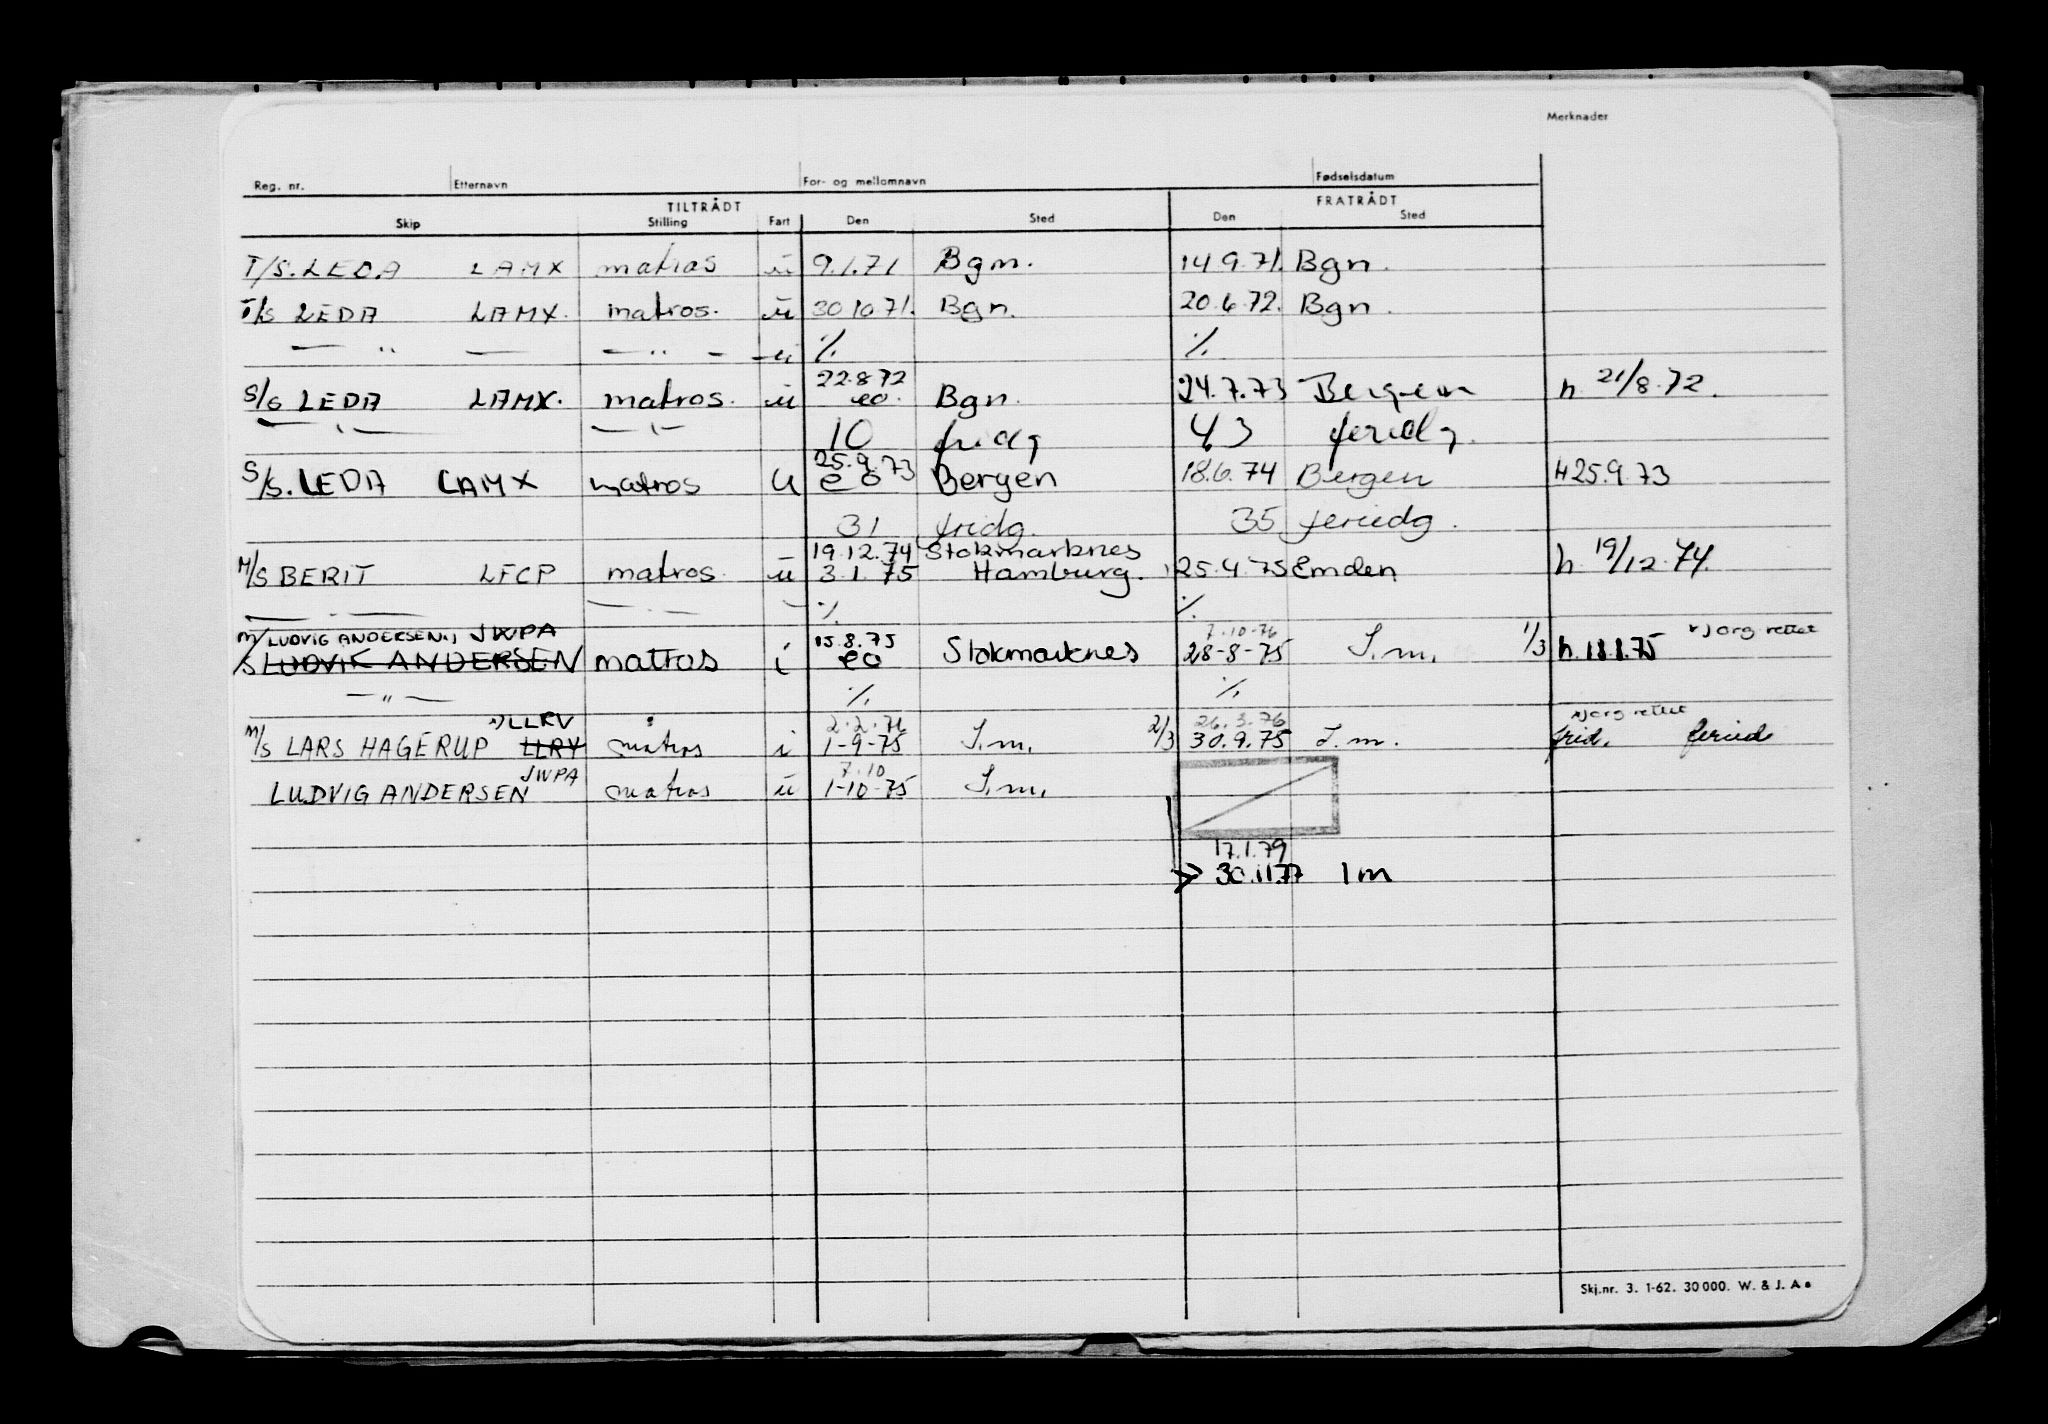 Merknader
Reg. nr. Etternavn For- og mellomnavn Fødselsdatum
TILTRÅDT FRATRÅDT
Skip Stilling Fart Den Sted Den Sted
T/S. LEDA LAMX matros u 9.1.71 Bgn. 14.9.71. Bgn.
T/S LEDA LAMX. matros. u 30.10.71. Bgn. 20.6.72. Bgn.
— " — — " — u % %
22.8.72
S/S LEDA LAMX. matros. u eo. Bgn. 24.7.73 Bergen h. 21/8.72.
— " — — " — 10 fridg 43 feriedg.
25.9.73
S/S. LEDA LAMX matros U eo Bergen 18.6.74 Bergen H 25.9.73
31 fridg. 35 feriedg.
19.12.74 Stokmarknes
M/S BERIT LFCP matros u 3.1.75 Hamburg. 25.4.75 Emden h. 19/12.74.
— " — — " — % %
M/ LUDVIG ANDERSEN JWPA 15.8.75 7.10.76 org rettet
S LUDVIK ANDERSEN matros i eo Stokmarknes 28-8-75 S.m. 1/3 h.
— " — % %
LLRV 2.2.76 26.3.76 org rettet
M/S LARS HAGERUP LLRY matros i 1-9-75 S.m. 2/3 30.9.75 S.m. frid. feried
JWPA 7.10
LUDVIG ANDERSEN matros u 1-10-75 S.m.
17.1.79
30.11.77 Im
Skj.nr. 3. 1-62. 30 000. W. & J. A